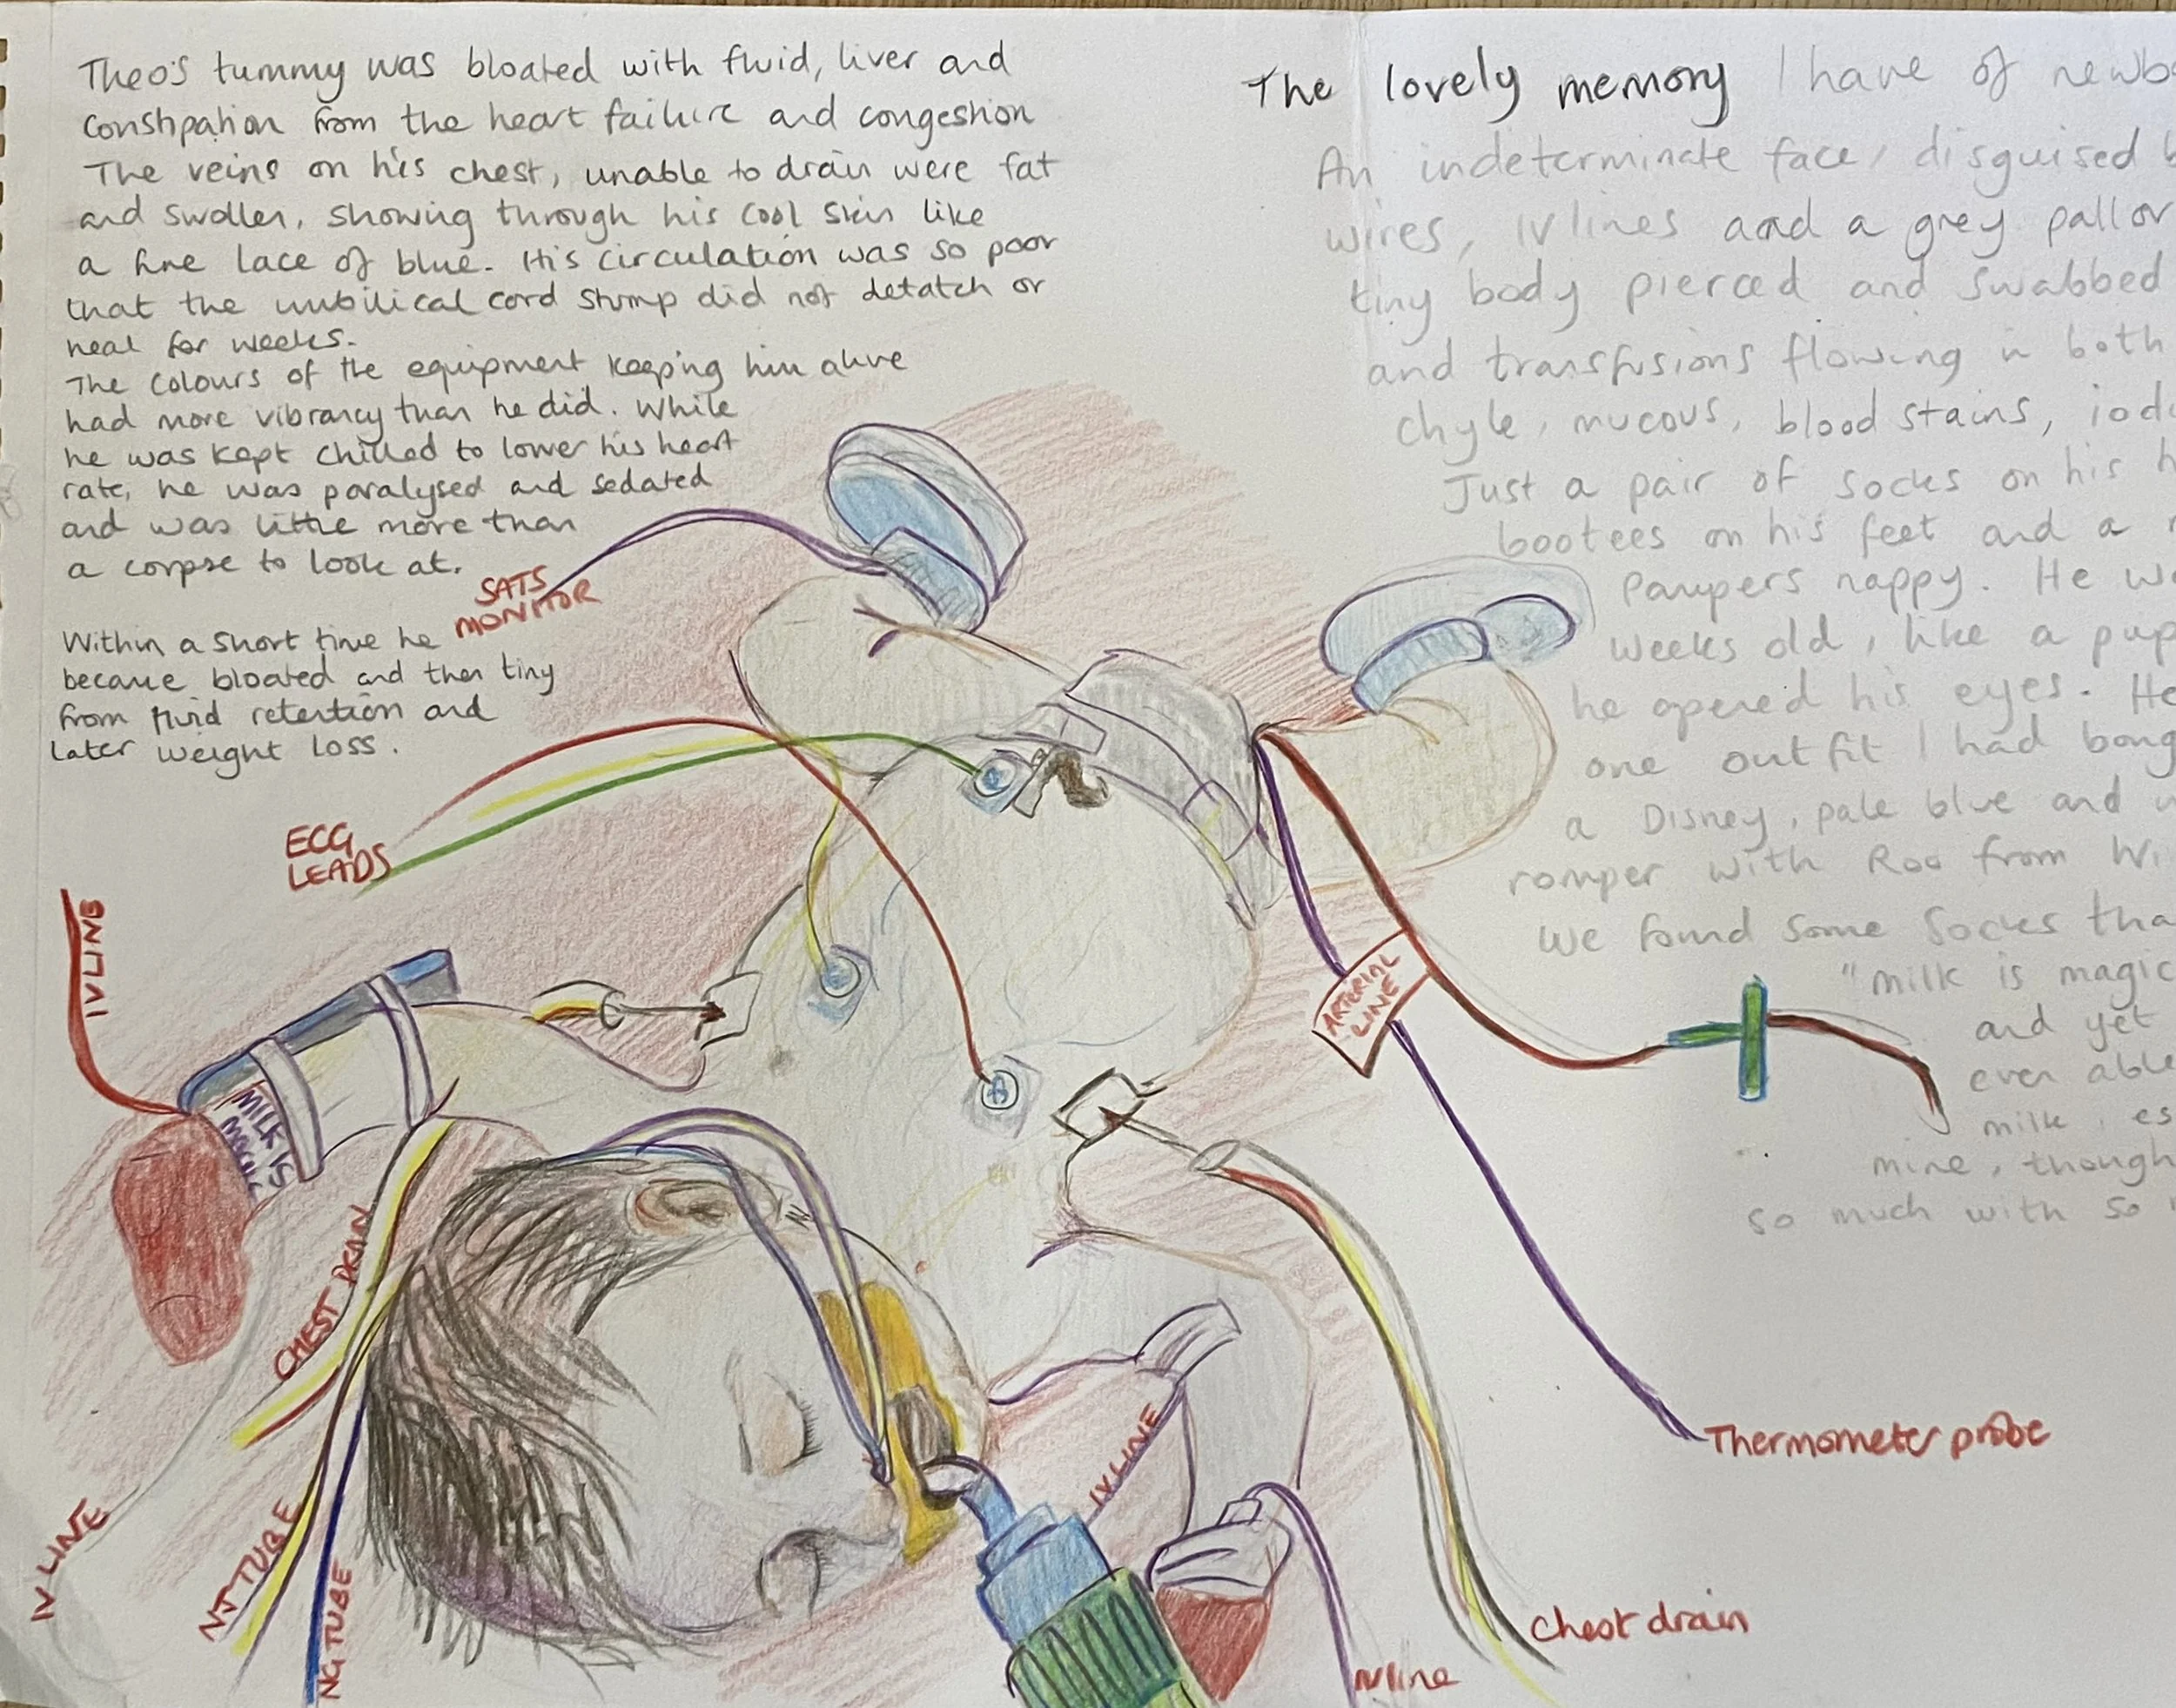 Theo's tummy was bloated with fluid, liver and
constipation from the heart failure and congestion
The veins on his chest, unable to drain were fat
and swollen, showing through his cool skin like
a fine lace of blue. His circulation was so poor
that the umbilical cord stump did not detatch or
heal for weeks.
The colours of the equipment keeping him alive
had more vibrancy than he did. While
he was kept chilled to lower his heart
rate, he was paralysed and sedated
and was little more than
a corpse to look at.
Within a short time he
became bloated and then tiny
from fluid retention and
later weight loss.
The lovely memory I have of newb
An indeterminate face, disguised b
wires, IV lines and a grey pallor
tiny body pierced and swabbed
and transfusions flowing in both
chyle, mucous, blood stains, iod
Just a pair of socks on his h
bootees on his feet and a
Pampers nappy. He w
weeks old, like a pup
he opened his eyes. He
one outfit I had boug
a Disney, pale blue and
romper with Roo from Wi
We found some socks tha
"milk is magic
and yet
even able
milk, es
mine, though
so much with so
SATS
MONITOR
ECG
LEADS
IV LINE
MILK IS
MAGIC
ARTERIAL
LINE
CHEST DRAIN
IV LINE
NJ TUBE
NG TUBE
IV LINE
Thermometer probe
Chest drain
IV line